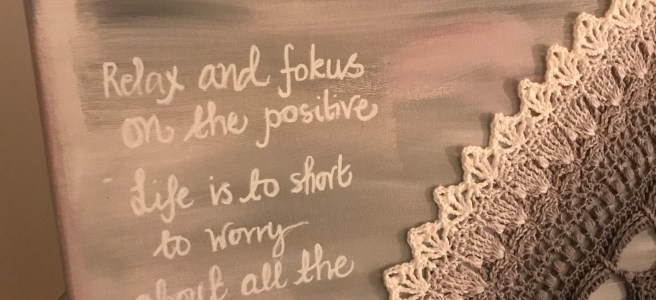 Relax and fokus
on the positive
- Life is to short
to worry
about all the